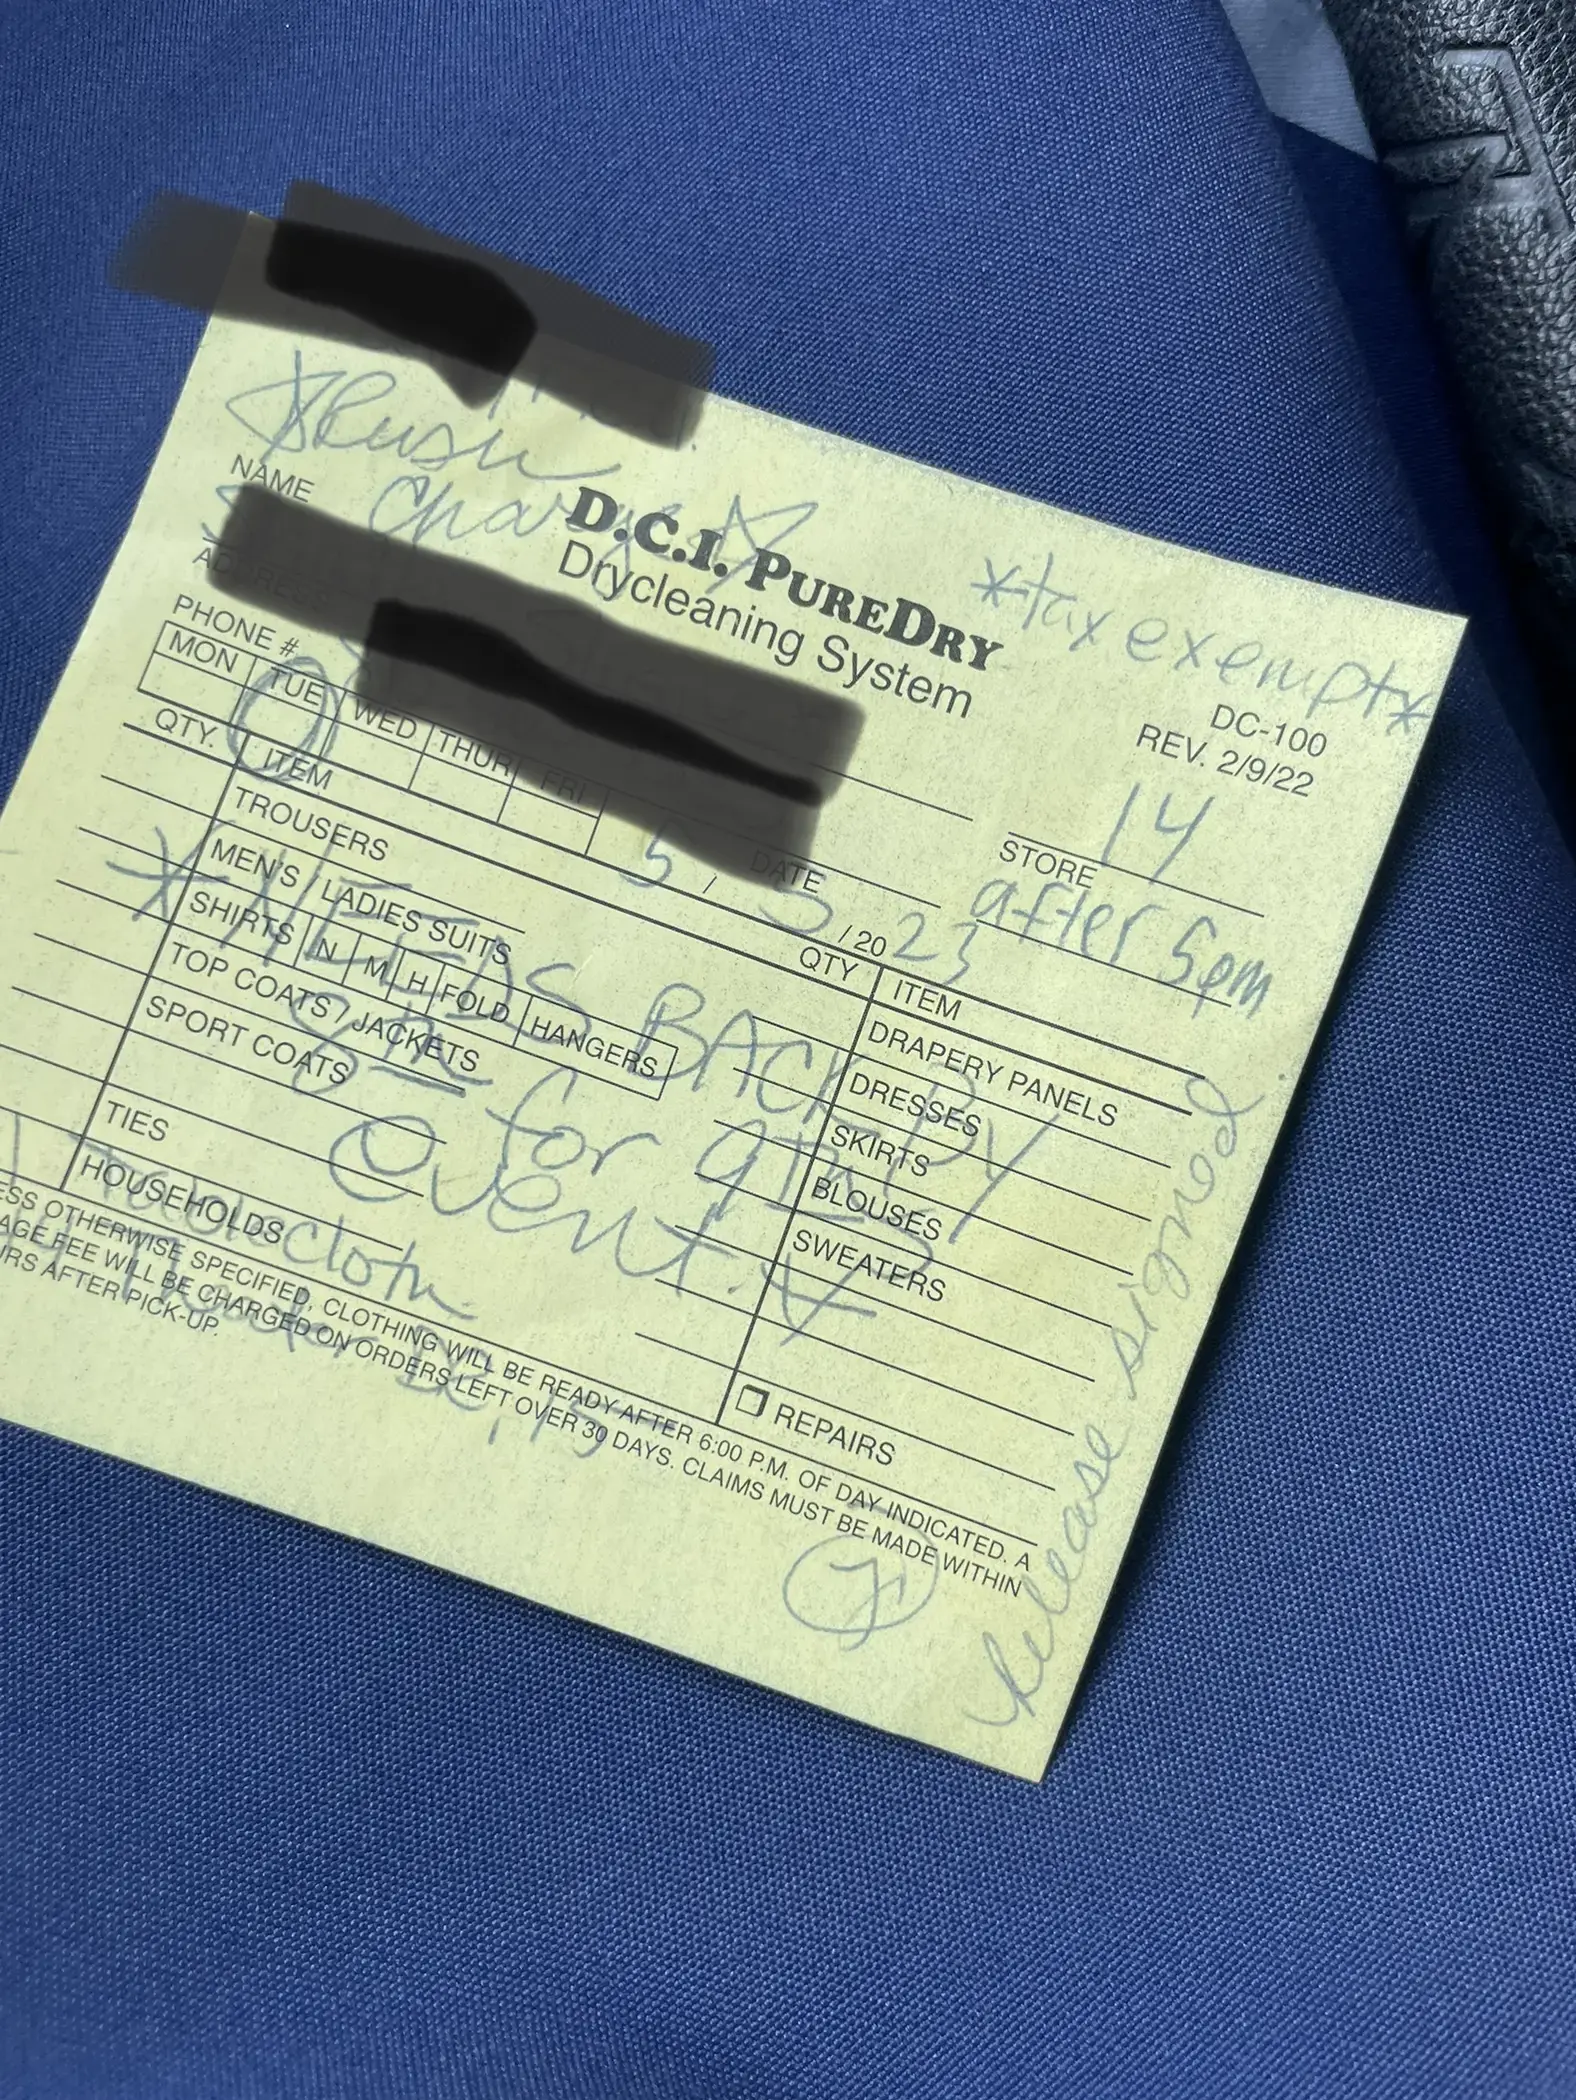 *Rush
Charge
NAME
D.C.I. PUREDRY
Drycleaning System
*tax exempt*
ADDRESS
DC-100
REV. 2/9/22
PHONE #
14
STORE
MON TUE WED THUR FRI
DATE
5 / 5 / 20 23
after 5pm
QTY. ITEM
QTY ITEM
TROUSERS
MEN'S / LADIES SUITS
SHIRTS N M H FOLD HANGERS
TOP COATS / JACKETS
SPORT COATS
TIES
HOUSEHOLDS
DRAPERY PANELS
DRESSES
SKIRTS
BLOUSES
SWEATERS
REPAIRS
*NEEDS BACK BY
8th for 9th
event.
cloth
release signed
ESS OTHERWISE SPECIFIED, CLOTHING WILL BE READY AFTER 6:00 P.M. OF DAY INDICATED. A
AGE FEE WILL BE CHARGED ON ORDERS LEFT OVER 30 DAYS. CLAIMS MUST BE MADE WITHIN
URS AFTER PICK-UP.